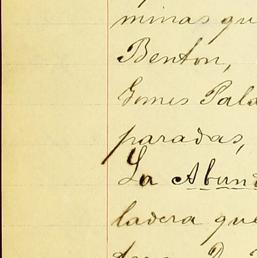 minas qu
Benton,
Gomes Pala
paradas,
La Abund
ladera que